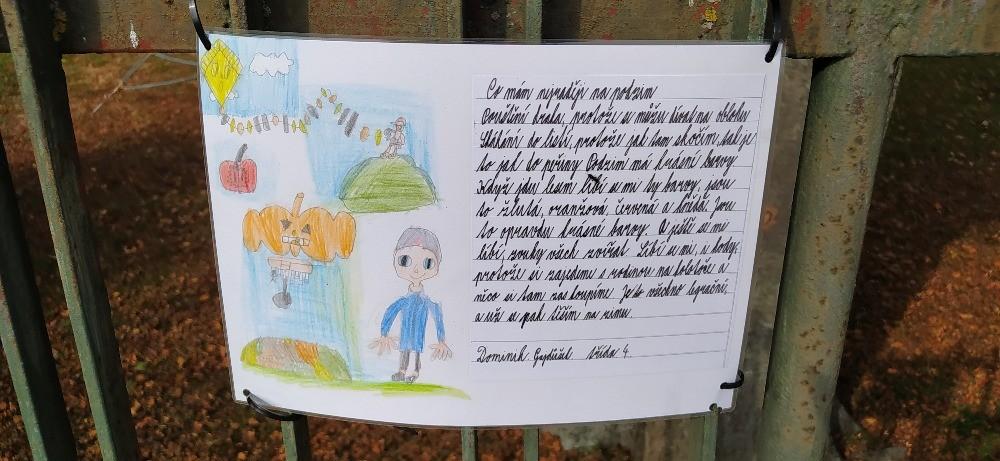 Co mám nejraději na podzim
Pouštění draka, protože se můžu dívat na oblohu
Skákání do listí, protože jak tam skočím, tak je
to jak do peřiny Podzim má krásné barvy
Když jdu lesem líbí se mi ty barvy, jsou
to žlutá, oranžová, červená a hnědá. Jsou
to opravdu krásné barvy. A ještě se mi
líbí, zvuky všech zvířat. Líbí se mi, i hody,
protože si zajedeme s rodinou na kolotoče a
něco si tam zas koupíme. Je to všechno legrační,
a už se pak těším na zimu.
Dominik třída 4.